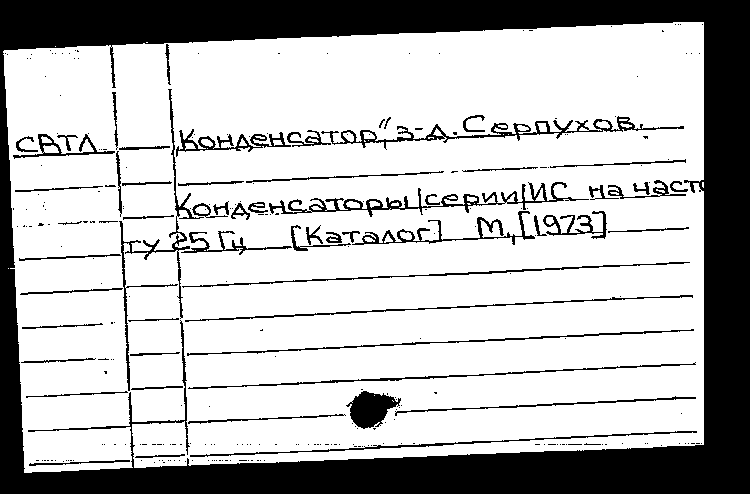 СВТЛ „Конденсатор“, з-д. Серпухов.
Конденсаторы/серии/ИС на часто
ту 25 Гц [Каталог] М., [1973]